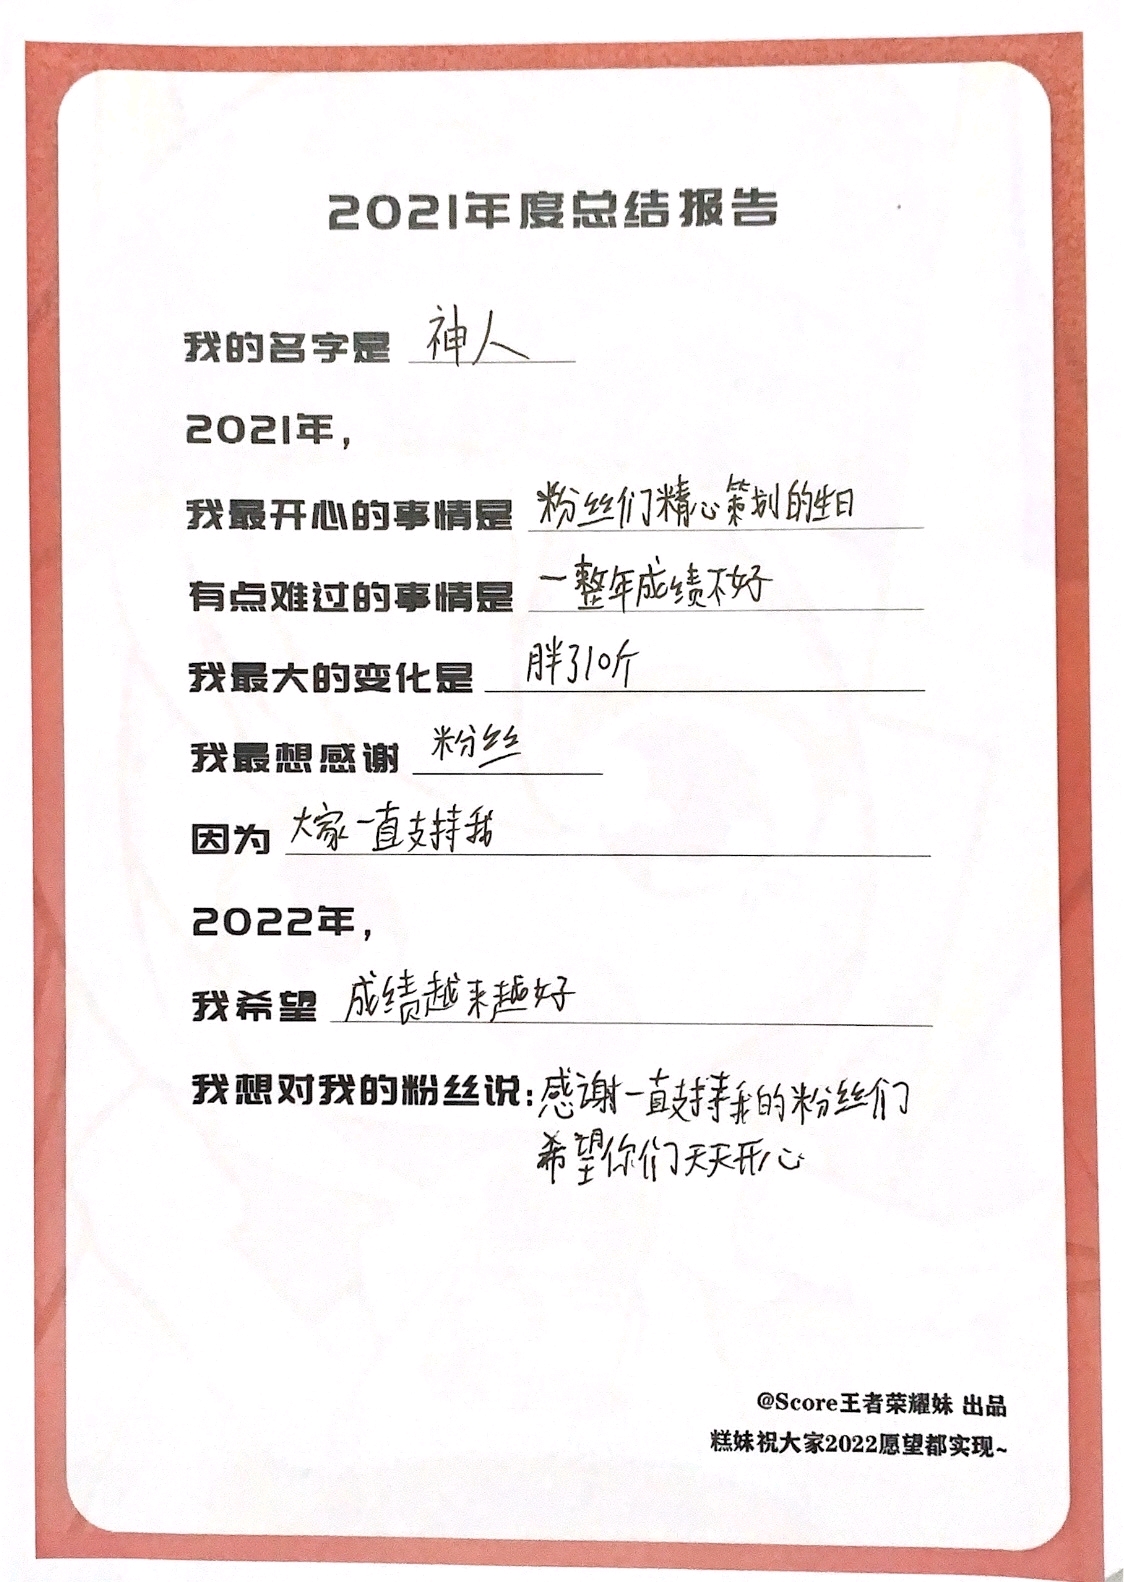 2021年度总结报告
我的名字是 神人
2021年，
我最开心的事情是 粉丝们精心策划的生日
有点难过的事情是 一整年成绩不好
我最大的变化是 胖了10斤
我最想感谢 粉丝
因为 大家一直支持我
2022年，
我希望 成绩越来越好
我想对我的粉丝说：感谢一直支持我的粉丝们
希望你们天天开心
@Score王者荣耀妹 出品
糕妹祝大家2022愿望都实现~